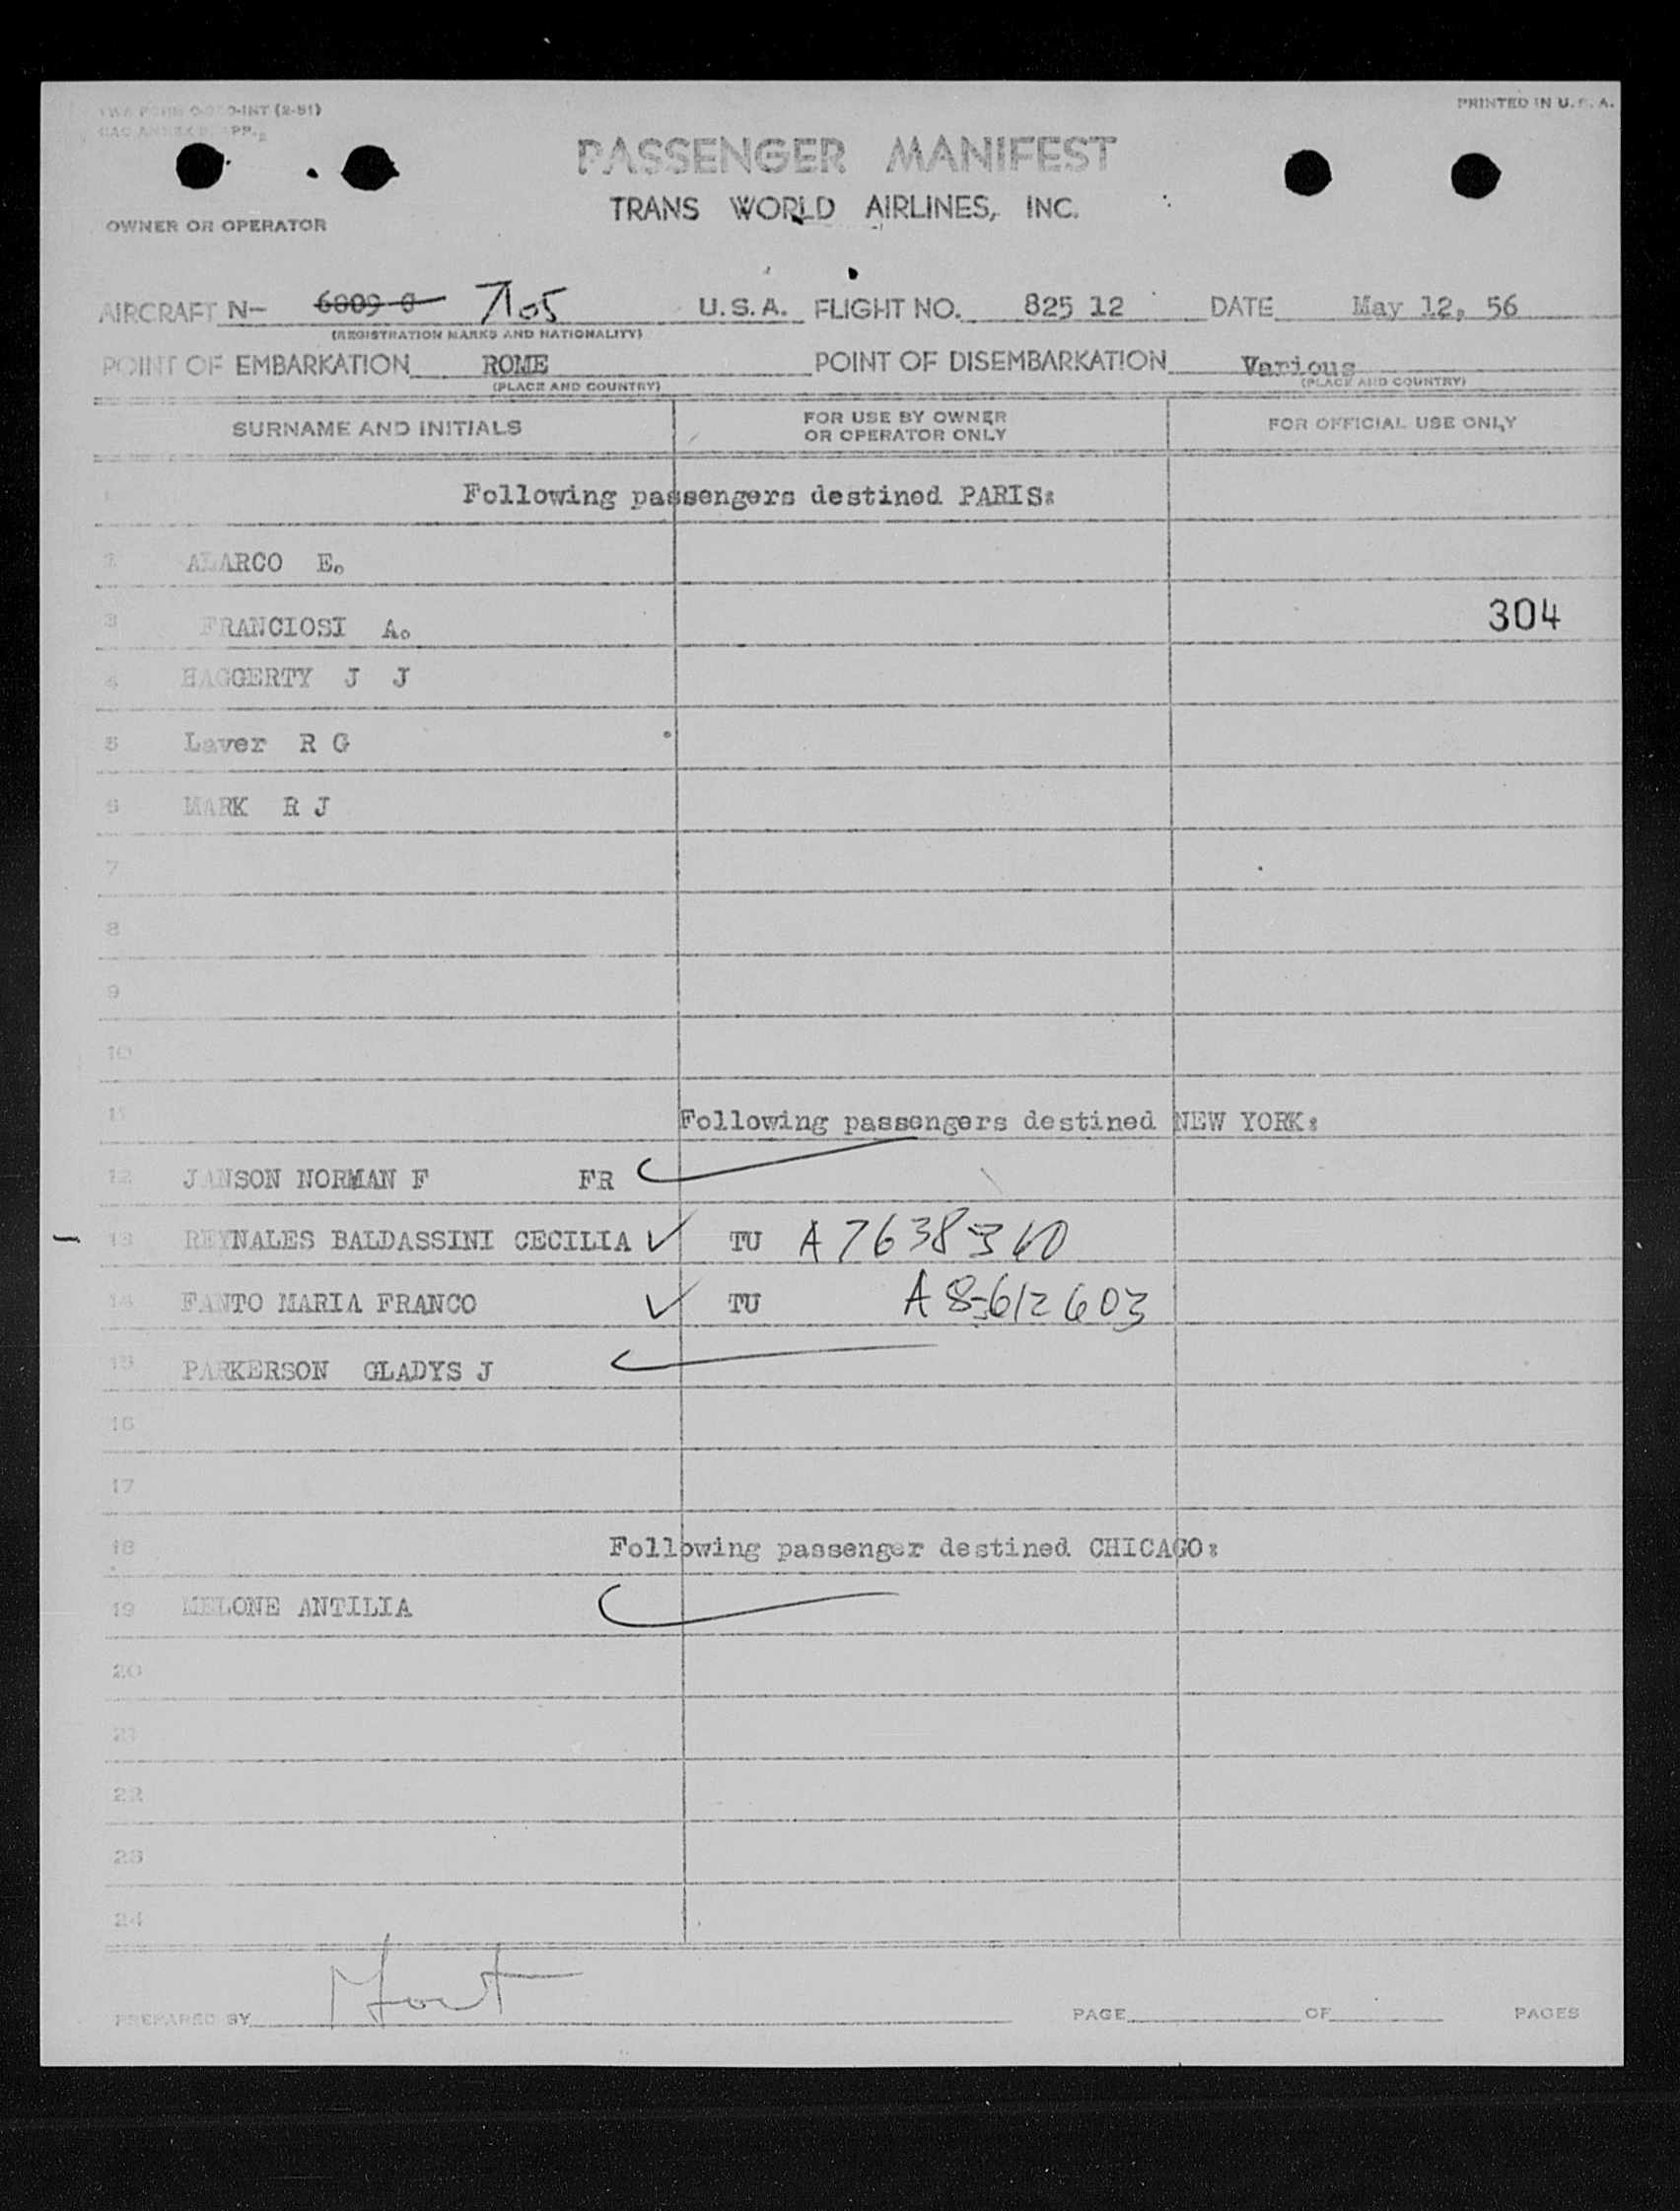 PRINTED IN U.S.A.
PASSENGER MANIFEST
TRANS WORLD AIRLINES, INC.
OWNER OR OPERATOR
AIRCRAFT N- 6009 C 7105 U.S.A. FLIGHT NO. 825 12 DATE May 12, 56
(REGISTRATION MARKS AND NATIONALITY)
POINT OF EMBARKATION ROME POINT OF DISEMBARKATION Various
(PLACE AND COUNTRY) (PLACE AND COUNTRY)
SURNAME AND INITIALS FOR USE BY OWNER OR OPERATOR ONLY FOR OFFICIAL USE ONLY
1 Following passengers destined PARIS:
2 ALARCO E.
3 FRANCIOSI A. 304
4 HAGGERTY J J
5 Laver R G
6 MARK R J
7
8
9
10
11 Following passengers destined NEW YORK:
12 JANSON NORMAN F FR
13 REYNALES BALDASSINI CECILIA ✓ TU A7638360
14 FANTO MARIA FRANCO ✓ TU A8-612603
15 PARKERSON GLADYS J
16
17
18 Following passenger destined CHICAGO:
19 MELONE ANTILIA
20
21
22
23
24
PREPARED BY PAGE OF PAGES